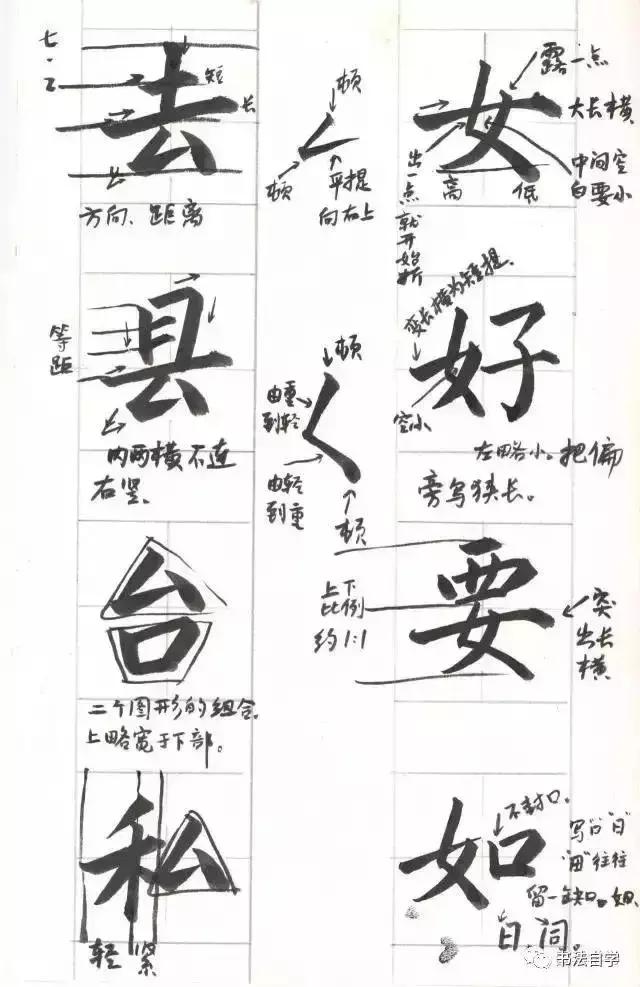 七.工
去
短
长
方向、距离
顿
顿
平提
向右上
女
露一点
大长横
中间空
白要小
出一点就开始折
高
低
县
等距
内两横不连
右竖。
顿
由重
到轻
由轻
到重
顿
好
变长横为短提.
空小
左略小。把偏
旁写狭长。
台
二个图形的组合.
上略宽于下部。
要
上下
比例
约1:1
突出长横
私
轻 紧
如
不封口.
写"口""日"
"田"往往
留一缺口。如.
白、词。
书法自学